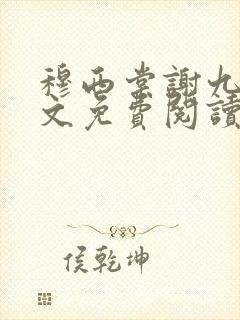 穆西棠謝九
文免費閱讀
侯乾坤